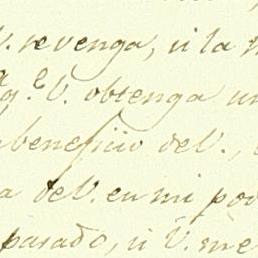 V. revenga, si la
q.e V. obtenga un
beneficio de V.,
a de V. en mi pod
pasado, si V. me